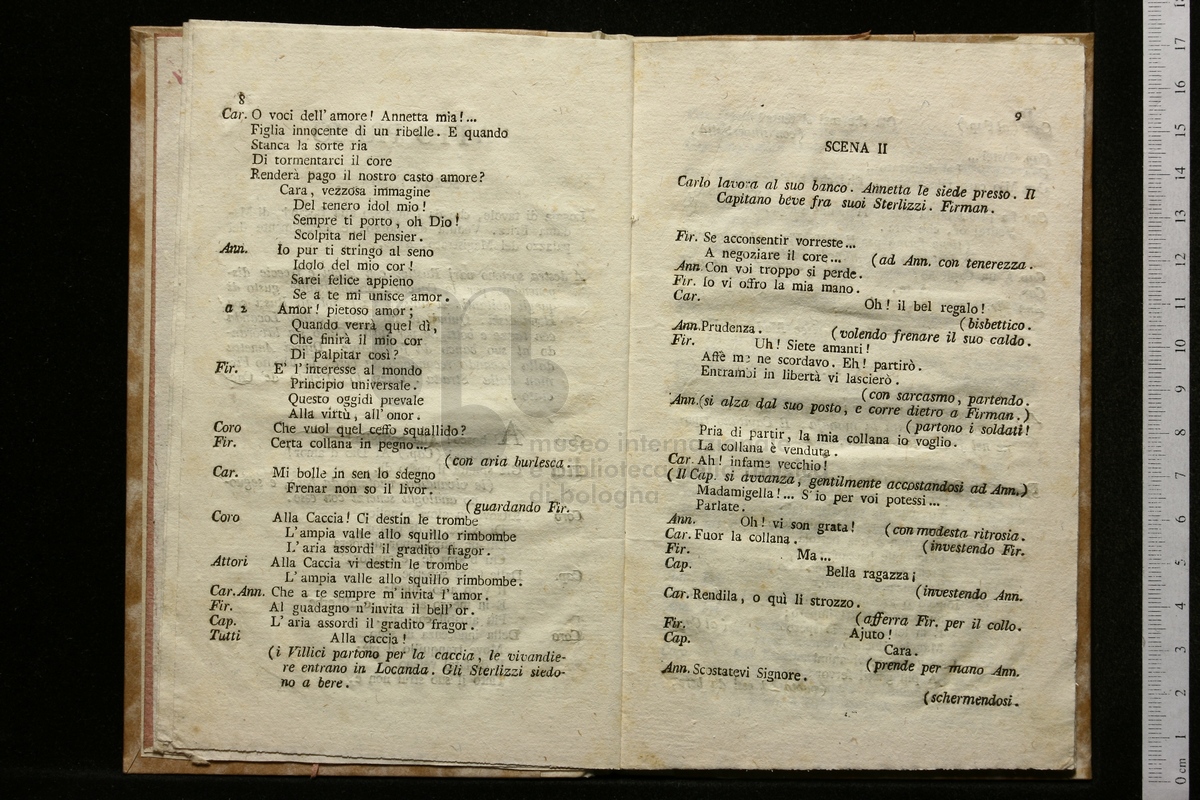 8
Car. O voci dell'amore! Annetta mia!...
Figlia innocente di un ribelle. E quando
Stanca la sorte ria
Di tormentarci il core
Renderà pago il nostro casto amore?
Cara, vezzosa immagine
Del tenero idol mio!
Sempre ti porto, oh Dio!
Scolpita nel pensier.
Ann. Io pur ti stringo al seno
Idolo del mio cor!
Sarei felice appieno
Se a te mi unisce amor.
a 2 Amor! pietoso amor;
Quando verrà quel dì,
Che finirà il mio cor
Di palpitar così?
Fir. E' l'interesse al mondo
Principio universale.
Questo oggidì prevale
Alla virtù, all'onor.
Coro Che vuol quel ceffo squallido?
Fir. Certa collana in pegno...
(con aria burlesca.
Car. Mi bolle in sen lo sdegno
Frenar non so il livor.
(guardando Fir.
Coro Alla Caccia! Ci destin le trombe
L'ampia valle allo squillo rimbombe
L'aria assordi il gradito fragor.
Attori Alla Caccia vi destin le trombe
L'ampia valle allo squillo rimbombe.
Car. Ann. Che a te sempre m'invita l'amor.
Fir. Al guadagno n'invita il bell'or.
Cap. L'aria assordi il gradito fragor.
Tutti Alla caccia!
(i Villici partono per la caccia, le vivandie-
re entrano in Locanda. Gli Sterlizzi siedo-
no a bere.
9
SCENA II
Carlo lavora al suo banco. Annetta le siede presso. Il
Capitano beve fra suoi Sterlizzi. Firman.
Fir. Se acconsentir vorreste...
A negoziare il core... (ad Ann. con tenerezza.
Ann. Con voi troppo si perde.
Fir. Io vi offro la mia mano.
Car. Oh! il bel regalo!
(bisbettico.
Ann. Prudenza. (volendo frenare il suo caldo.
Fir. Uh! Siete amanti!
Affè me ne scordavo. Eh! partirò.
Entrambi in libertà vi lascierò.
(con sarcasmo, partendo.
Ann. (si alza dal suo posto, e corre dietro a Firman.)
(partono i soldati!
Pria di partir, la mia collana io voglio.
La collana è venduta.
Car. Ah! infame vecchio!
(Il Cap. si avvanza, gentilmente accostandosi ad Ann.)
Madamigella!... S'io per voi potessi...
Parlate.
Ann. Oh! vi son grata! (con modesta ritrosia.
Car. Fuor la collana. (investendo Fir.
Fir. Ma...
Cap. Bella ragazza¡
(investendo Ann.
Car. Rendila, o quì li strozzo.
(afferra Fir. per il collo.
Fir. Ajuto!
Cap. Cara.
(prende per mano Ann.
Ann. Scostatevi Signore.
(schermendosi.
museo internazionale
e biblioteca della musica
di bologna
17
16
15
14
13
12
11
10
9
8
7
6
5
4
3
2
1
0 cm